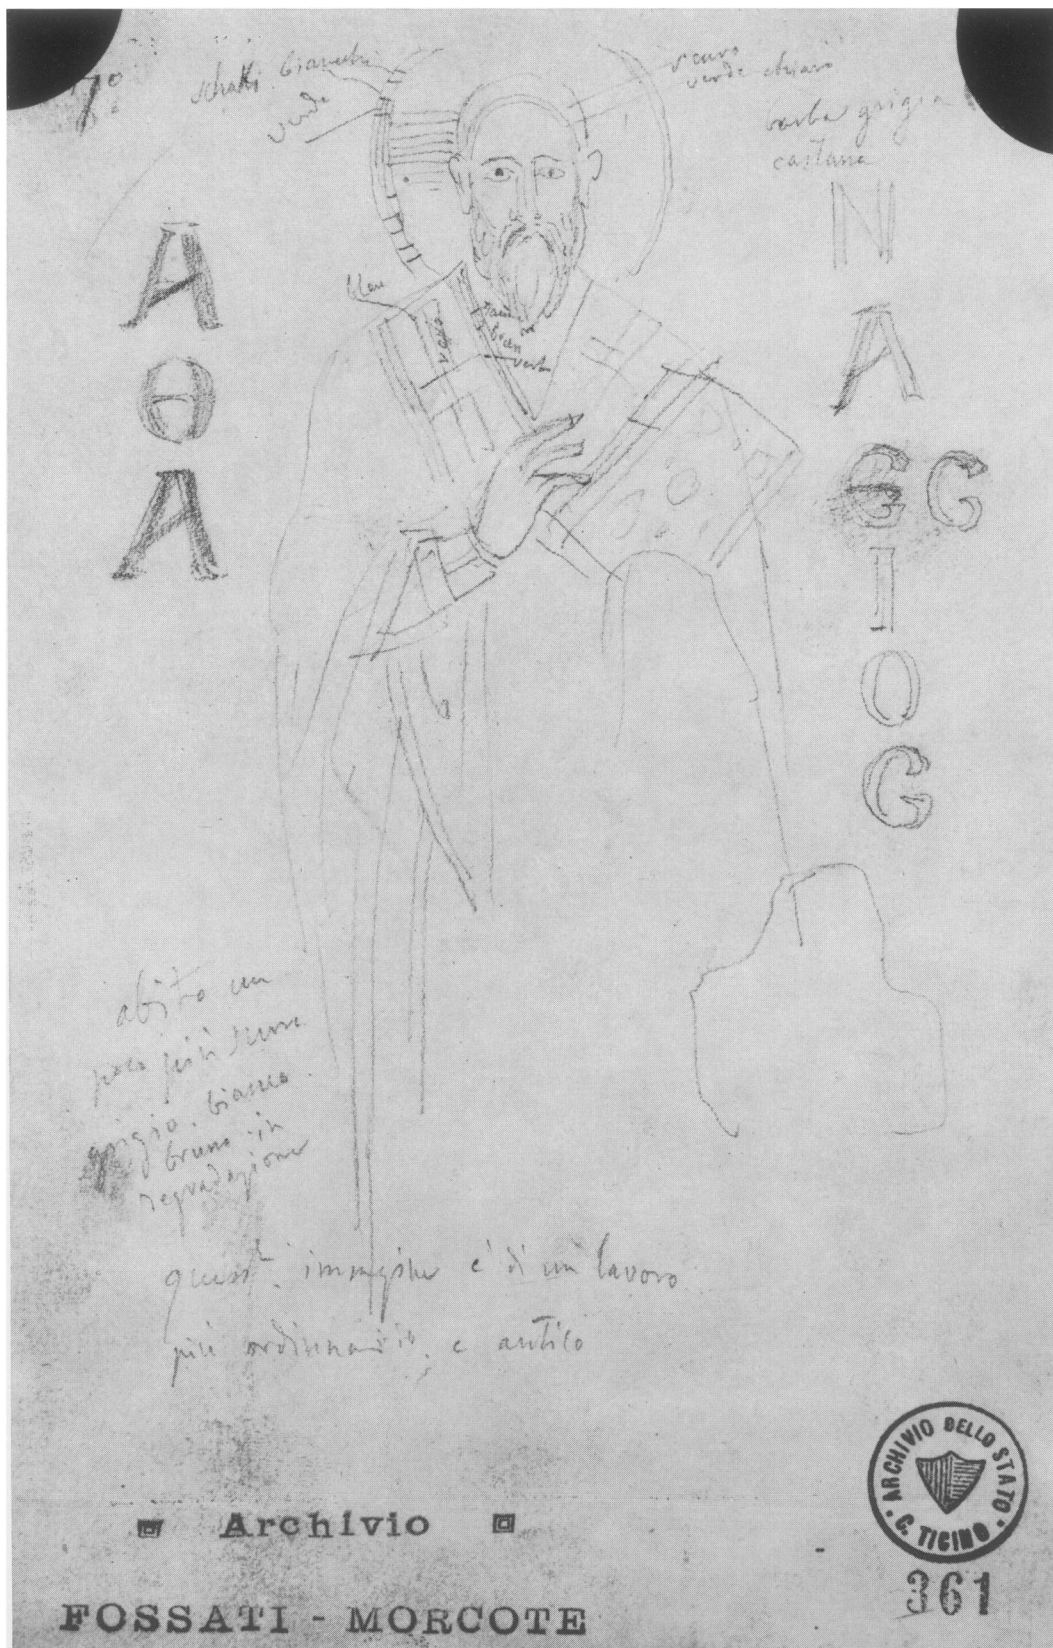 7º
bianchi
verde
scuro
verde chiaro
barba grigia
castana
Α
Θ
Α
Ν
Α
Ϲ Ϲ
Ι
Ο
Ϲ
bleu
verde
abito un
poco più scuro
grigio. bianco.
bruno in
degradazione
quest. immagine è di un lavoro
più ordinario. e antico
Archivio
FOSSATI - MORCOTE
ARCHIVIO DELLO STATO
C. TICINO
361